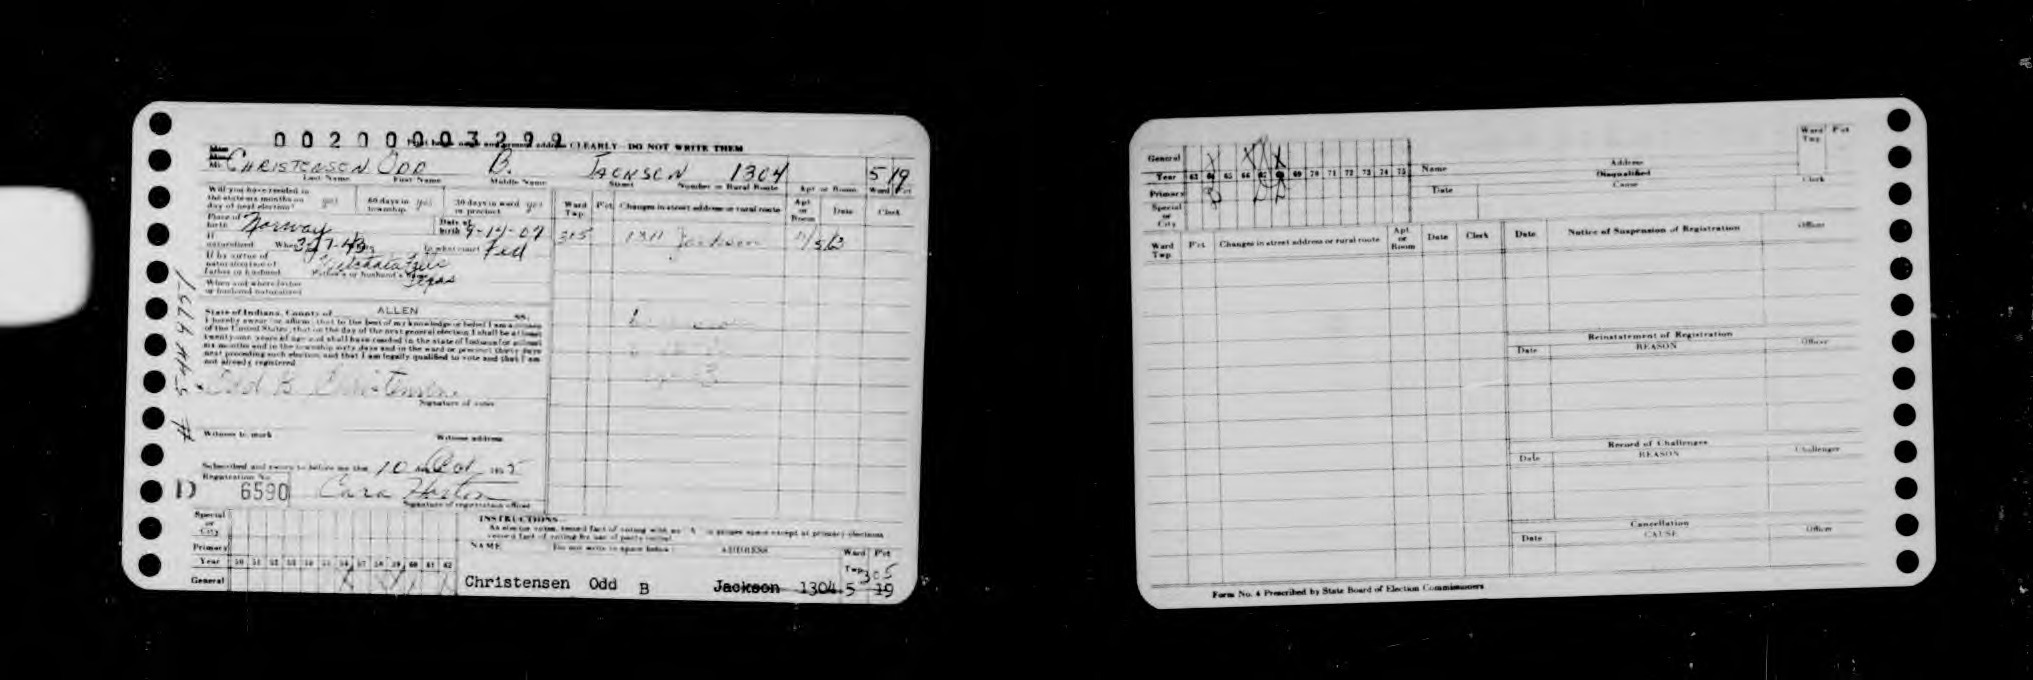 00200003299
Print last name and present address CLEARLY - DO NOT WRITE THEM
Mr. CHRISTENSEN ODD B. JACKSON 1304 5 19
Last Name First Name Middle Name Street Number or Rural Route Apt or Room Ward Pct
Will you have resided in the state six months on day of next election? yes 60 days in township yes 30 days in ward yes or precinct
Place of birth Norway Date of birth 9-14-07
If naturalized When In what court Fed
If by virtue of naturalization of father or husband Father's or husband's
Texas
When and where father or husband naturalized
Ward Twp. Pct Changes in street address or rural route Apt or Room Date Clerk
305 1311 Jackson
State of Indiana, County of ALLEN ss.
I hereby swear (or affirm) that to the best of my knowledge or belief I am a citizen
of the United States; that on the day of the next general election I shall be at least
twenty-one years of age and shall have resided in the state of Indiana for at least
six months and in the township sixty days and in the ward or precinct thirty days
next preceding such election and that I am legally qualified to vote and that I am
not already registered
Odd B Christensen
Signature of voter
Witness to mark Witness address
Subscribed and sworn to before me this 10 Oct
Registration No. 6590
D
Signature of registration officer
# 5449757
Special or City
Primary
Year 50 51 52 53 54 55 56 57 58 59 60 61 62
General
INSTRUCTIONS
NAME Do not write in space below ADDRESS Ward Twp. Pct
305
Christensen Odd B Jackson 1304 5 19
General
Year 63 64 65 66 67 68 69 70 71 72 73 74 75
Primary
Special or City
Name Address Ward Twp. Pct
Disqualified
Date Cause Clerk
Ward Twp. Pct Changes in street address or rural route Apt. or Room Date Clerk
Date Notice of Suspension of Registration Officer
Reinstatement of Registration
Date REASON Officer
Record of Challenges
Date REASON Challenger
Cancellation
Date CAUSE Officer
Form No. 4 Prescribed by State Board of Election Commissioners